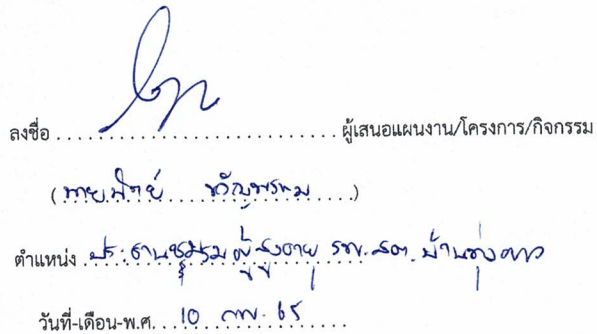 ลงชื่อ ........................ ผู้เสนอแผนงาน/โครงการ/กิจกรรม
(นาย )
ตำแหน่ง ประธานชมรมผู้สูงอายุ รพ.สต. บ้านทุ่งยาว
วันที่-เดือน-พ.ศ. 10 กพ. 65